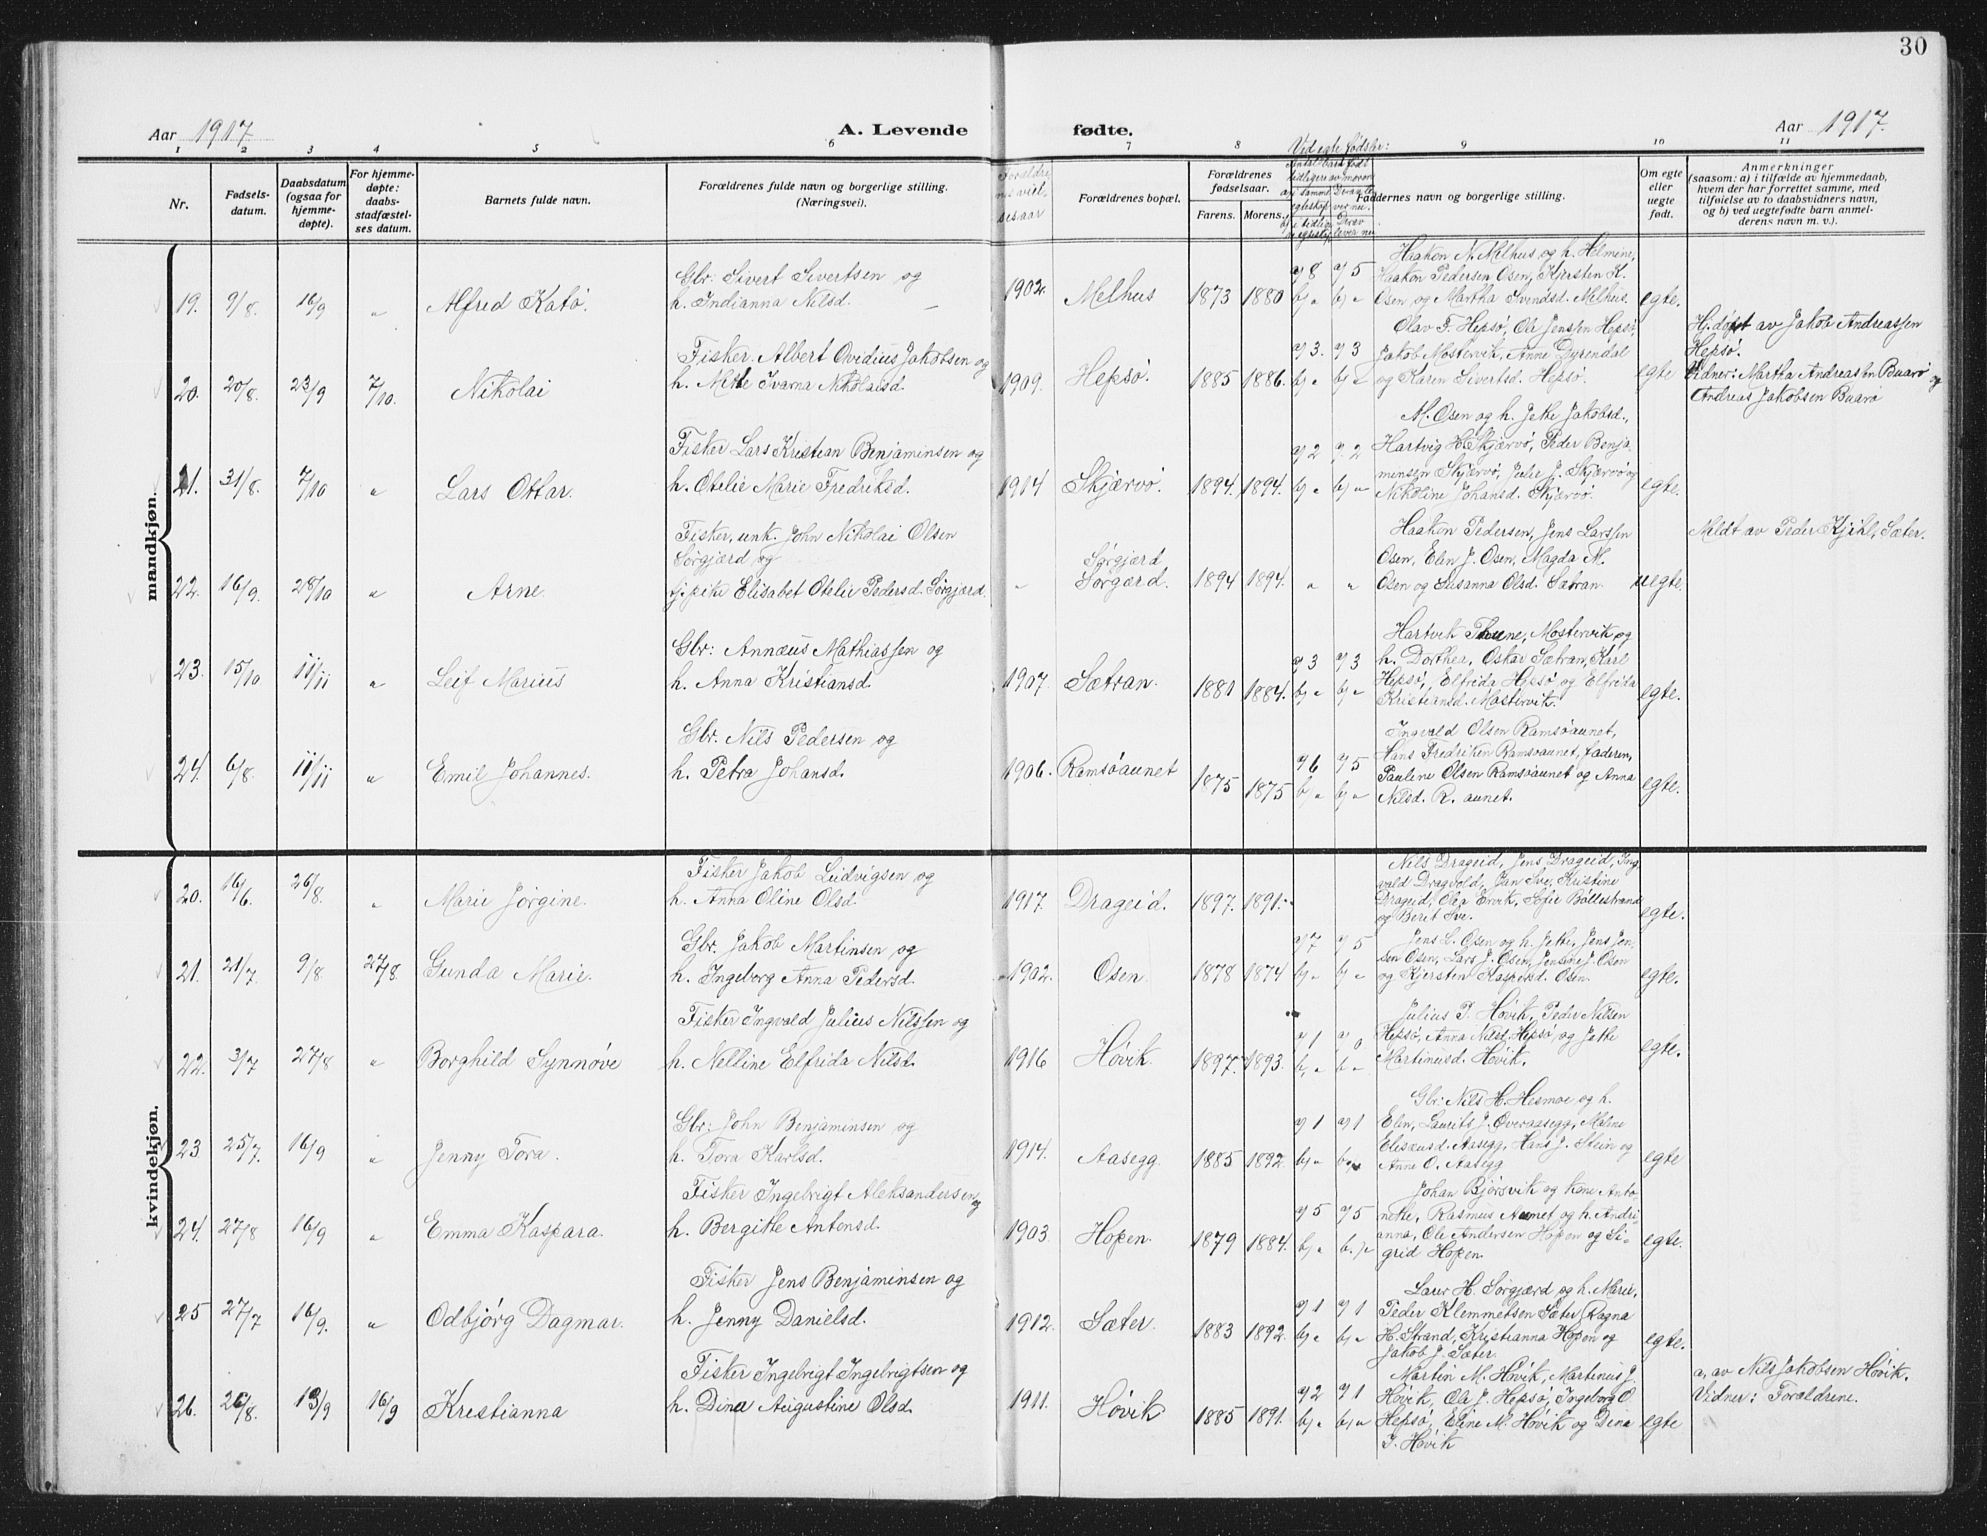 30
Aar 1917
A. Levende fødte.
Aar 1917.
1 2 3 4 5 6 7 8 9 10 11
Ved egte fødsler:
Nr.
Fødsels-
datum.
Daabsdatum
(ogsaa for
hjemme-
døpte).
For hjemme-
døpte:
daabs-
stadfæstel-
ses datum.
Barnets fulde navn.
Forældrenes fulde navn og borgerlige stilling.
(Næringsvei).
Forældrenes bopæl.
Forældrenes
fødselsaar.
Farens. Morens.
Faddernes navn og borgerlige stilling.
Om egte
eller
uegte
født.
Anmerkninger
(saasom: a) i tilfælde av hjemmedaab,
hvem der har forrettet samme, med
tilføielse av to daabsvidners navn,
og b) ved uegtefødte barn anmel-
derens navn m. v.).
mandkjøn.
19. 9/8. 16/9 „ Alfred Kato.
Gbr. Sivert Sivertsen og
h. Indianna Nilsd.
1902. Melhus 1873 1880 a) 8 a) 5 b) „ b) „
Haakon N. Melhus og h. Helmine,
Haakon Pedersen Osen, Kjersten K.
Osen og Martha Svendsd. Melhus.
egte.
20. 20/8. 23/9 7/10. Nikolai
Fisker. Albert Ovidius Jakobsen og
h. Mette Ivarna Nikolaisd.
1909. Hepsø. 1885 1886. a) 3. a) 3 b) „ b) „
Olav F. Hepsø, Ole Jenssen Hepsø,
Jakob Mostervik, Anne Dyrendal
og Karen Sivertsd. Hepsø.
egte
Hj.døpt av Jakob Andreassen
Hepsø.
Vidner: Martha Andreassen Buarø og
Andreas Jakobsen Buarø
21. 31/8. 7/10 „ Lars Ottar.
Fisker Lars Kristian Benjaminsen og
h. Otelie Marie Fredriksd.
1914 Skjærvø. 1894. 1894. a) 2 a) 2 b) „ b) „
M. Osen og h. Jeke Jakobsd.,
Hartvig H. Skjærvø, Peder Benja-
minsen Skjærvø, J. Skjærvø og
Nikoline Johansd. Skjærvø.
egte.
22. 16/9. 28/10 „ Arne.
Fisker, unk. John Nikolai Olsen
Sørgjærd og
pike Elisabet Otelie Pedersd. Sørgjærd
Sørgjerd
Sørgærd. 1894 1894. „ „
Haakon Pedersen, Jens Larssen
Osen, Elen J. Osen, Magda M.
Osen og Susanna Olsd. Sætran.
uegte.
Meldt av Peder Kjihl, Sæter.
23. 15/10 11/11 „ Leif Marius
Gbr: Annæus Mathiassen og
h. Anna Kristiansd.
1907. Sætran. 1881 1884. a) 3 a) 3 b) „ b) „
Hartvik Thune, Mostervik og
h. Dorthea, Oskar Sætran, Karl
Hepsø, Elfrida Hepsø og Elfrida
Kristiansd. Mostervik.
egte.
24. 6/8. 11/11 „ Emil Johannes.
Gbr. Nils Pedersen og
h. Petra Johansd.
1906. Ramsøaunet 1875 1875 a) 6 a) 5 b) „ b) „
Ingvald Olsen Ramsøaunet,
Hans Fredriken Ramsøaunet, faderen,
Pauline Olsen Ramsøaunet og Anna
Nilsd. R. aunet.
egte.
kvindekjøn.
20. 16/6. 26/8. „ Marie Jørgine.
Fisker Jakob Ludvigsen og
h. Anna Oline Olsd.
1917. Drageid. 1897. 1891.
Nils Drageid, Jens Drageid, Ing-
vald Dragvold, Jan Sve, Kristine
Drageid, Ole Ervik, Sofie Bøllestrand
og Berit Sve.
egte.
21. 21/7. 9/8 27/8 Gunda Marie.
Gbr. Jakob Martinsen og
h. Ingeborg Anna Pedersd.
1902. Osen. 1878 1874 a) 7 a) 5 b) „ b) „
Jens L. Osen og h. Jekte, Jens Jen-
sen Osen, Lars J. Osen, Jensine J. Osen
og Kjersten Kaspersd. Osen.
egte.
22. 3/7 27/8 „ Borghild Synnøve
Fisker Ingvald Julius Nilssen og
h. Nelline Elfrida Nilsd.
1916 Høvik. 1897. 1893. a) 1 a) 0 b) „ b) „
Julius P. Høvik, Peder Nilsen
Hepsø, Anna Nilsd. Hepsø og
Martinusd. Høvik.
egte.
23 25/7. 16/9 „ Jenny Tora.
Gbr: John Benjaminsen og
h. Tora Karlsd.
1914. Aasegg. 1885 1892. a) 1 a) 1 b) „ b) „
Gbr: Nils H. Hesmoe og h.
Elen, Laurits J. Overaasegg, Maline
Eliseusd. Aasegg, Hans J. Stein og
Anne O. Aasegg
egte
24. 27/8 16/9 „ Emma Kaspara.
Fisker Ingebrigt Aleksandersen og
h. Bergitte Antonsd.
1903. Hopen. 1879 1884. a) 5 a) 5 b) „ b) „
Johan Bjørsvik og kone Anto-
nette, Rasmus Aunet og h. Andri-
anna, Ole Andersen Hopen og Si-
grid Hopen.
egte.
25 27/7 16/9. „ Odbjørg Dagmar.
Fisker Jens Benjaminsen og
h. Jenny Danielsd.
1912. Sæter. 1883 1892. a) 1 a) 1 b) „ b) „
Laur. H. Sørgjærd og h. Marie,
Peder Klemmetsen Sæter, Ragna
H. Strand, Kristianna Hopen og
Jakob J. Sæter.
egte.
26. 26/8. 13/9 16/9 Kristianna
Fisker Ingebrigt Ingebrigtsen og
h. Dina Augustine Olsd.
1911. Høvik 1885 1891. a) 2 a) 1 b) „ b) „
Martin M. Høvik, Martinus J.
Høvik, Ole J. Hepsø, Ingeborg O.
Hepsø, Eline M. Høvik og Dina
I. Høvik
egte
a, av Nils Jakobsen Høvik.
Vidner: Forældrene.